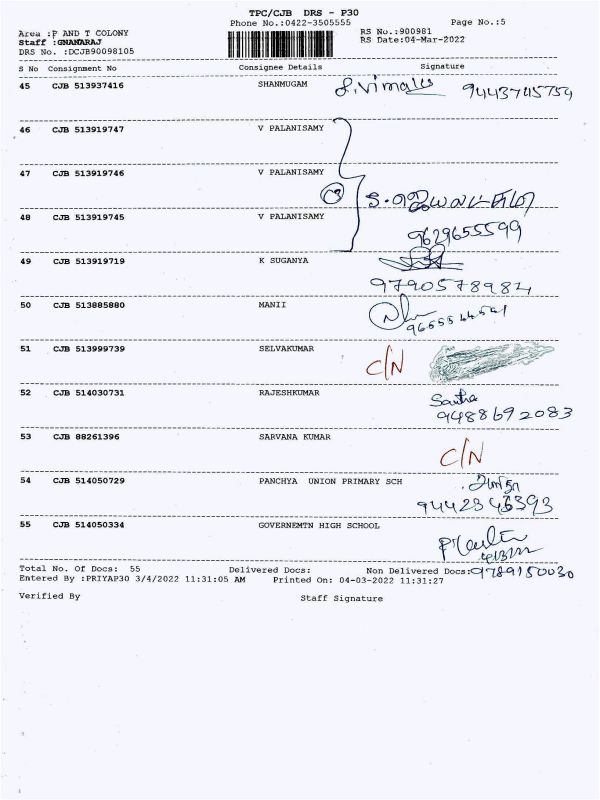 TPC/CJB DRS - P30
Phone No.:0422-3505555 Page No.:5
Area :P AND T COLONY RS No.:900981
Staff :GNANARAJ RS Date:04-Mar-2022
DRS No. :DCJB90098105
S No Consignment No Consignee Details Signature
45 CJB 513937416 SHANMUGAM 9443745754
46 CJB 513919747 V PALANISAMY
47 CJB 513919746 V PALANISAMY
48 CJB 513919745 V PALANISAMY
9629655599
49 CJB 513919719 K SUGANYA
9790578984
50 CJB 513885880 MANII
51 CJB 513999739 SELVAKUMAR C/N
52 CJB 514030731 RAJESHKUMAR
9488692083
53 CJB 88261396 SARVANA KUMAR C/N
54 CJB 514050729 PANCHYA UNION PRIMARY SCH
55 CJB 514050334 GOVERNEMTN HIGH SCHOOL
Total No. Of Docs: 55 Delivered Docs: Non Delivered Docs: 9789150030
Entered By :PRIYAP30 3/4/2022 11:31:05 AM Printed On: 04-03-2022 11:31:27
Verified By Staff Signature